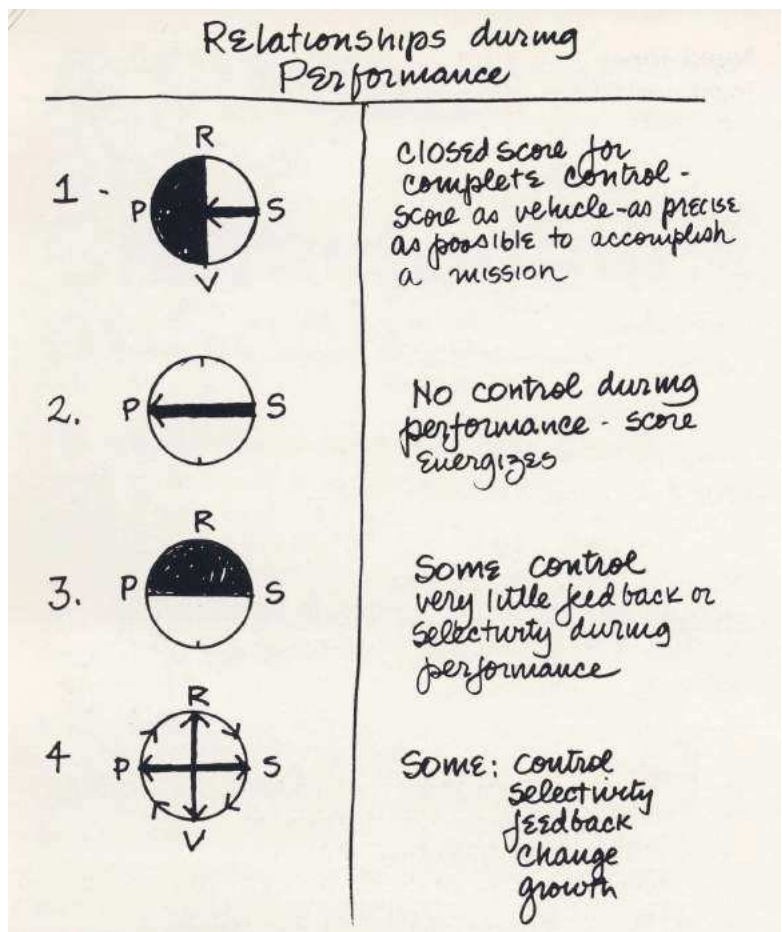 Relationships during
Performance
R
1 - P S
V
closed score for
complete control -
score as vehicle - as precise
as possible to accomplish
a mission
2. P S
No control during
performance - score
energizes
R
3. P S
Some control
very little feedback or
selectivity during
performance
R
4 P S
V
Some: control
selectivity
feedback
change
growth